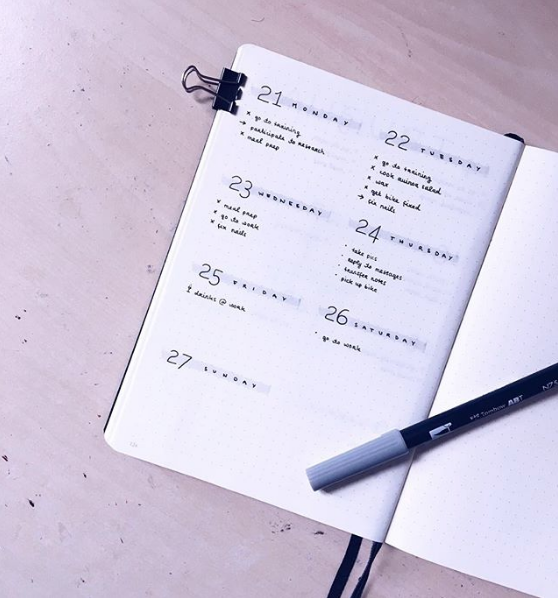 21 MONDAY
x go to training
→ participate to research
x meal prep
22 TUESDAY
x go to training
x cook quinoa salad
x wax
x get bike fixed
→ fix nails
23 WEDNESDAY
x meal prep
x go to work
x fix nails
24 THURSDAY
• take pics
• reply to messages
• transfer notes
• pick up bike
25 FRIDAY
drinks @ work
26 SATURDAY
• go to work
27 SUNDAY
Tombow ABT
N75